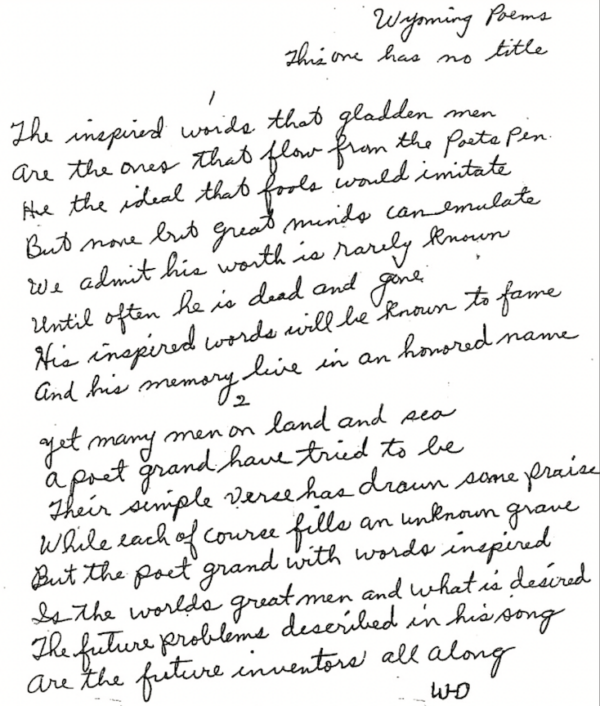 Wyoming Poems
This one has no title
1
The inspired words that gladden men
are the ones that flow from the Poets Pen.
He the ideal that fools would imitate
But none but great minds can emulate
We admit his worth is rarely known
Until often he is dead and gone.
His inspired words will be known to fame
And his memory live in an honored name
2
yet many men on land and sea
a poet grand have tried to be
Their simple verse has drawn some praise
While each of course fills an unknown grave
But the poet grand with words inspired
Is the worlds great men and what is desired
The future problems described in his song
are the future inventors all along
WD